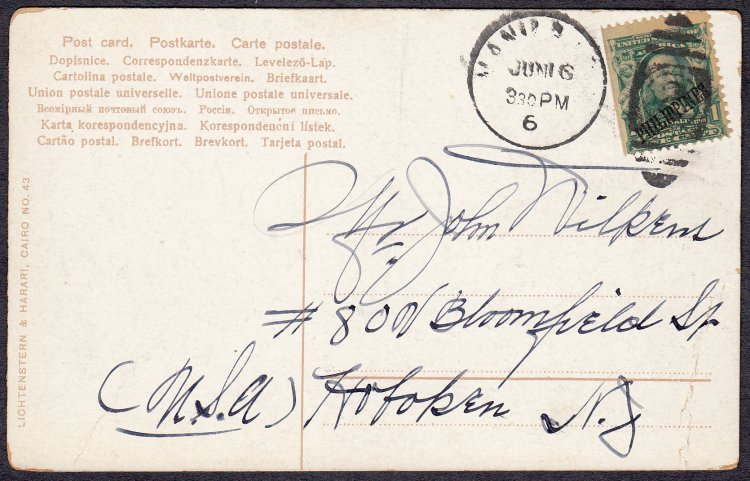 Post card. Postkarte. Carte postale.
Dopisnice. Correspondenzkarte. Levelező-Lap.
Cartolina postale. Weltpostverein. Briefkaart.
Union postale universelle. Unione postale universale.
Всемірный почтовый союзъ. Россія. Открытое письмо.
Karta korespondencyjna. Korespondenční lístek.
Cartão postal. Brefkort. Brevkort. Tarjeta postal.
JUN 16
330PM
6
PHILIPPINES
1
Mr John Wilkens
# 800 Bloomfield St
(U.S.A) Hoboken N.J
LICHTENSTERN & HARARI, CAIRO NO. 43